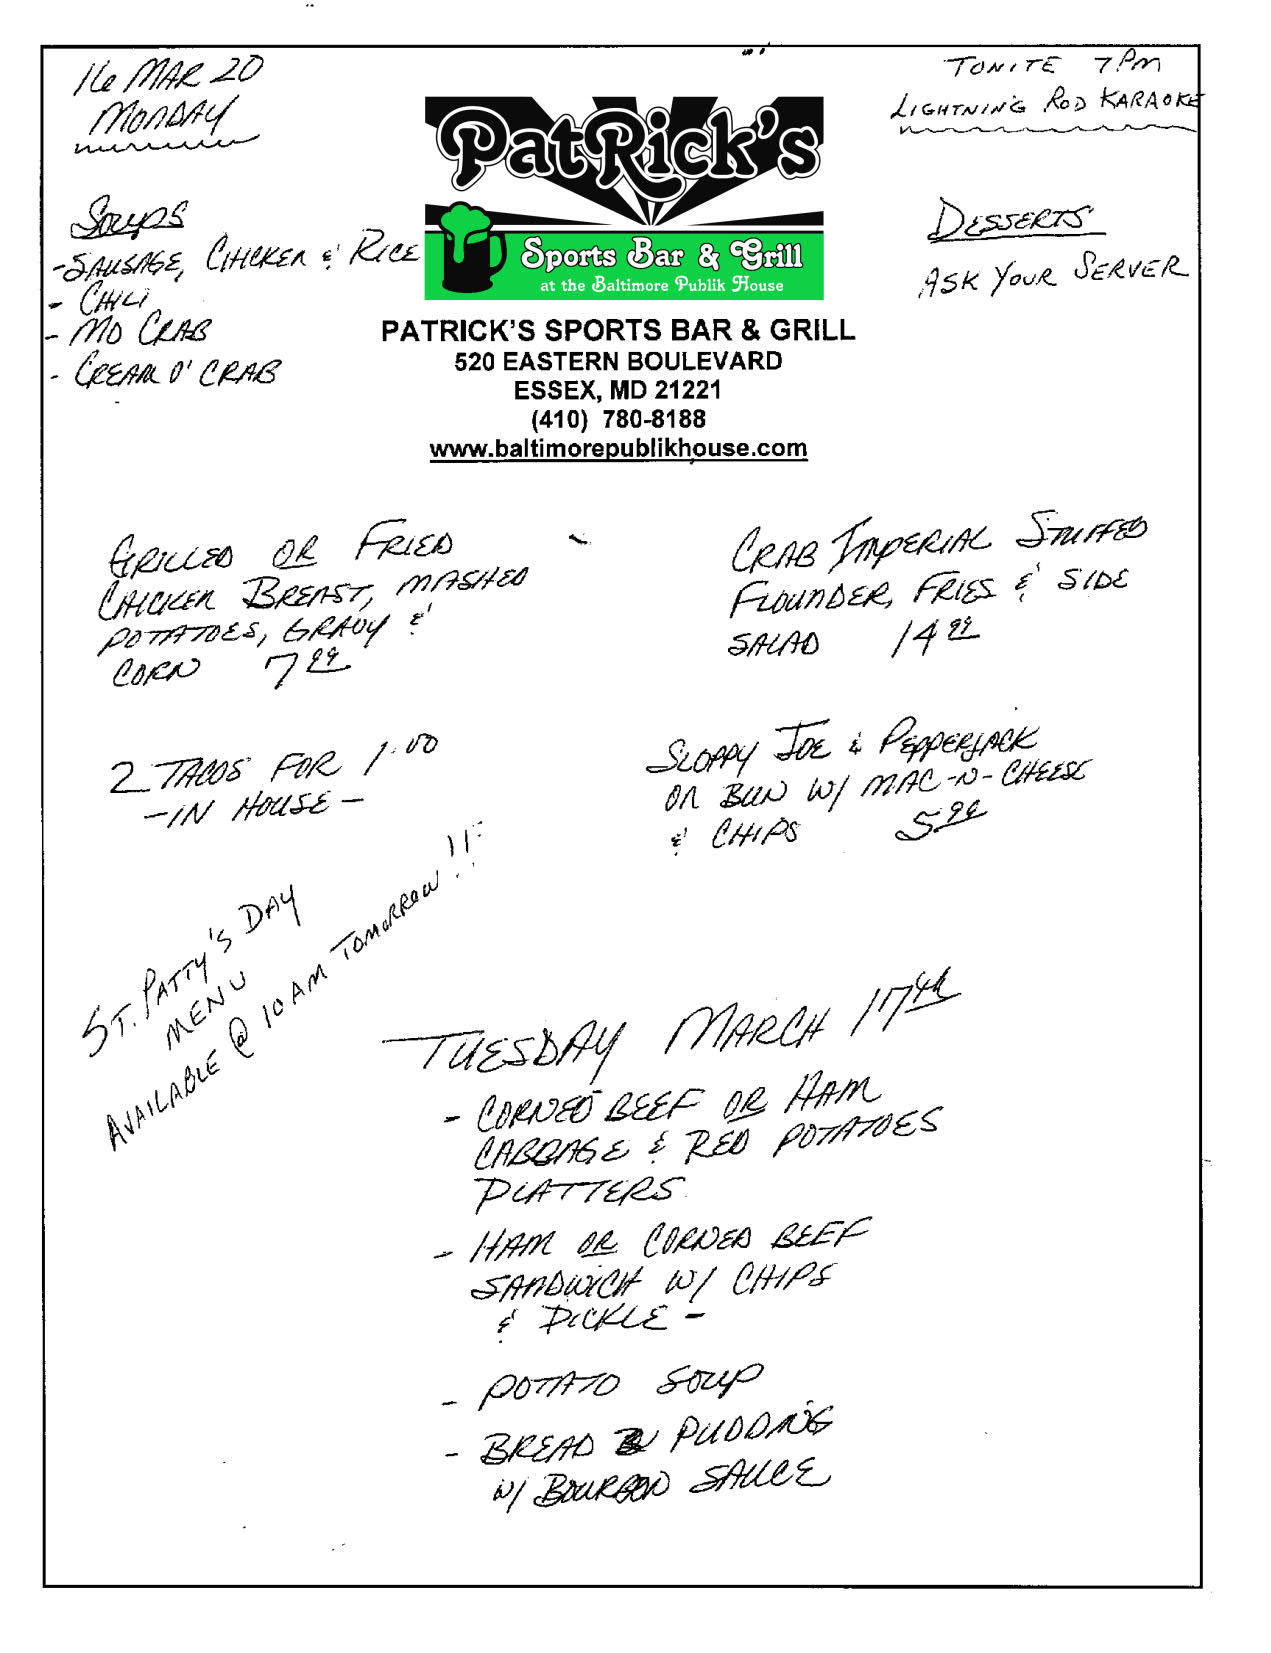 16 MAR 20
MONDAY
TONITE 7 PM
LIGHTNING ROD KARAOKE
PatRick's
Sports Bar & Grill
at the Baltimore Publik House
SOUPS
- SAUSAGE, CHICKEN & RICE
- CHILI
- MD CRAB
- CREAM O' CRAB
DESSERTS
ASK YOUR SERVER
PATRICK'S SPORTS BAR & GRILL
520 EASTERN BOULEVARD
ESSEX, MD 21221
(410) 780-8188
www.baltimorepublikhouse.com
GRILLED OR FRIED
CHICKEN BREAST, MASHED
POTATOES, GRAVY &
CORN 7 99
CRAB IMPERIAL STUFFED
FLOUNDER, FRIES & SIDE
SALAD 14 99
2 TACOS FOR 1.00
- IN HOUSE -
SLOPPY JOE & PEPPERJACK
ON BUN W/ MAC-N-CHEESE
& CHIPS 5 99
ST. PATTY'S DAY
MENU
AVAILABLE @ 10 AM TOMORROW!!
TUESDAY MARCH 17th
- CORNED BEEF OR HAM
CABBAGE & RED POTATOES
PLATTERS
- HAM OR CORNED BEEF
SANDWICH W/ CHIPS
& PICKLE -
- POTATO SOUP
- BREAD PUDDING
W/ BOURBON SAUCE